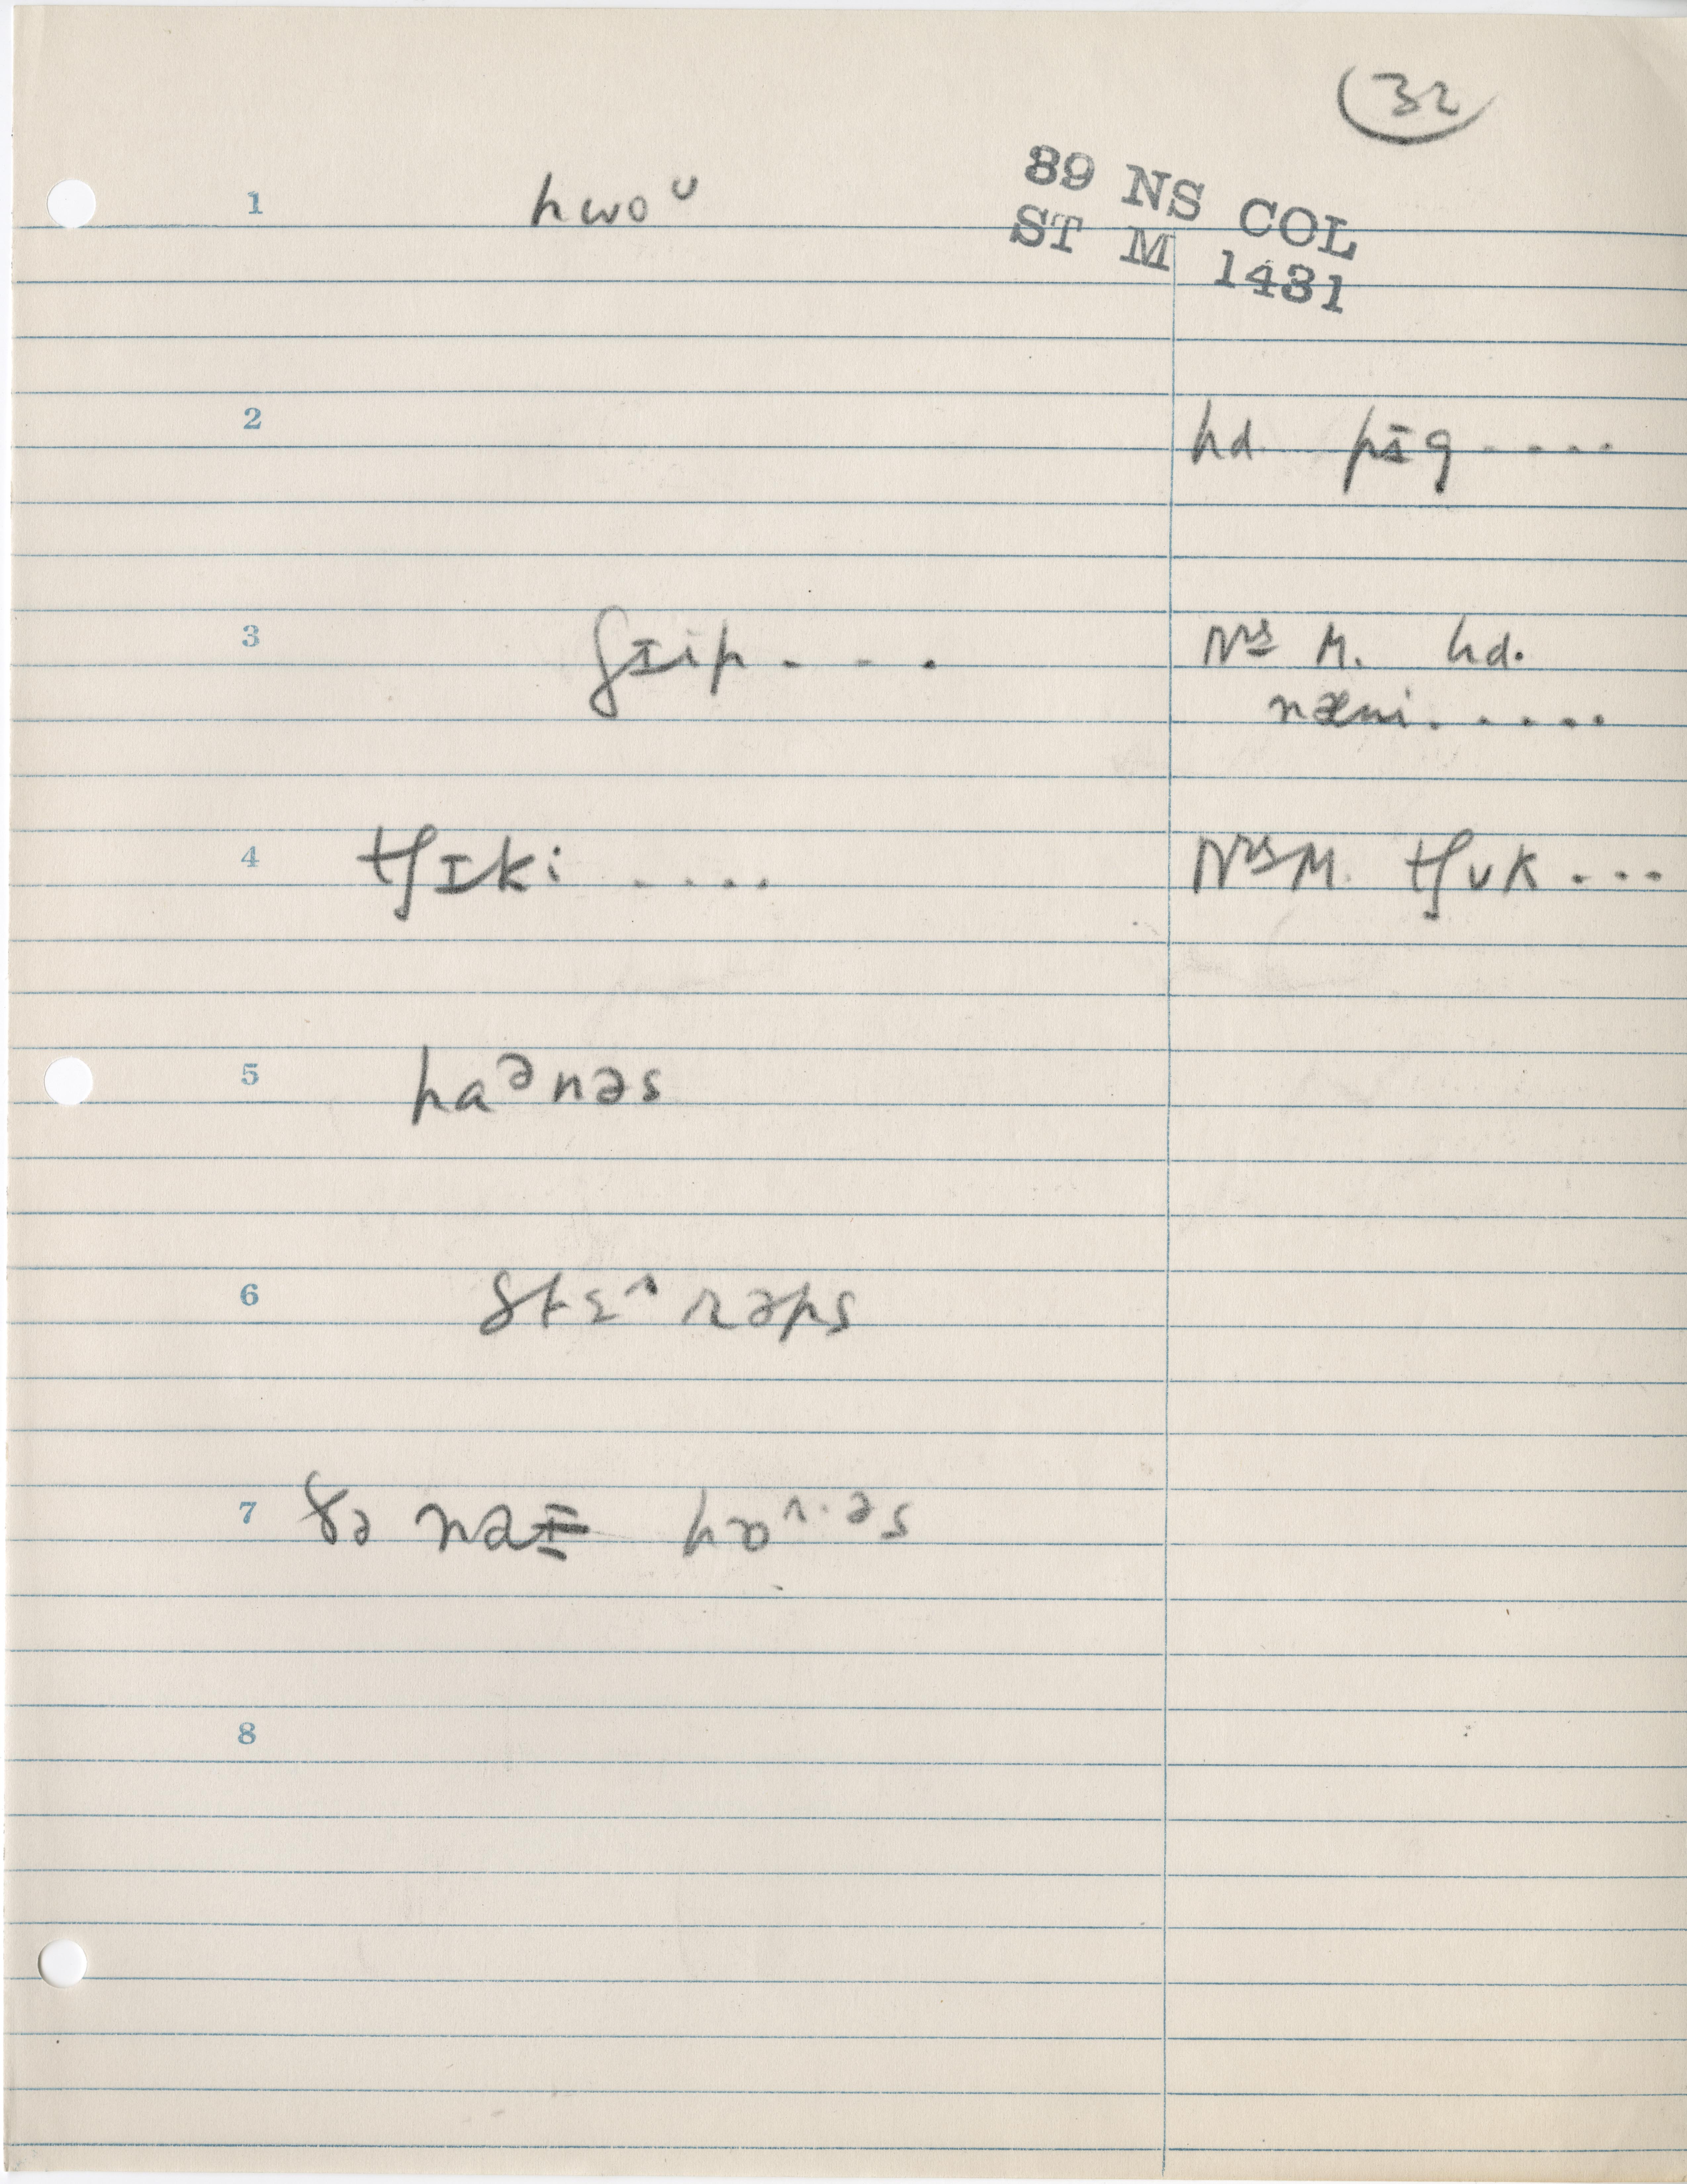 32
89 NS COL
ST M 1431
1 hwoᴜ
2 hd. pɪg ....
3 ʃɪip . . . Mrs M. hd.
næni.....
4 tʃɪki .... Mrs M. tʃʊk ...
5 haᵊnəs
6 stɛʳrəps
7 ðə naɪ hɒʳ·əs
8